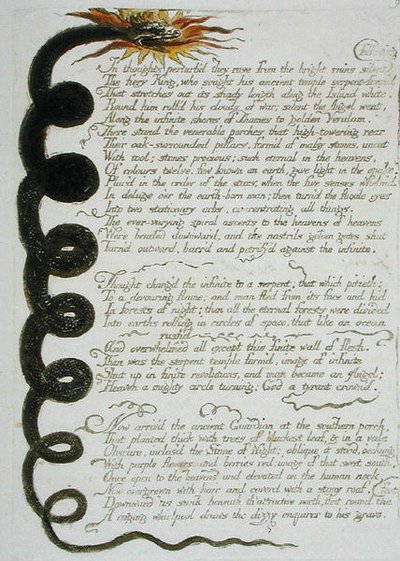 In thoughts perturb'd they rose from the bright ruins silent
The fiery King, who sought his ancient temple serpent-form'd
That stretches out its shady length along the Island white.
Round him roll'd his clouds of war; silent the Angel went,
Along the infinite shores of Thames to golden Verulam.
There stand the venerable porches that high-towering rear
Their oak-surrounded pillars, form'd of massy stones, uncut
With tool; stones precious; such eternal in the heavens,
Of colours twelve, few known on earth, give light in the opake,
Plac'd in the order of the stars, when the five senses whelm'd
In deluge o'er the earth-born man; then turn'd the fluxile eyes
Into two stationary orbs, concentrating all things.
The ever-varying spiral ascents to the heavens of heavens
Were bended downward, and the nostrils golden gates shut
Turn'd outward, barr'd and petrify'd against the infinite.
Thought chang'd the infinite to a serpent; that which pitieth:
To a devouring flame; and man fled from its face and hid
In forests of night; then all the eternal forests were divided
Into earths rolling in circles of space, that like an ocean
rush'd
And overwhelmed all except this finite wall of flesh.
Then was the serpent temple form'd, image of infinite
Shut up in finite revolutions, and man became an Angel;
Heaven a mighty circle turning; God a tyrant crown'd.
Now arriv'd the ancient Guardian at the southern porch,
That planted thick with trees of blackest leaf, & in a vale
Obscure, inclos'd the Stone of Night; oblique it stood, o'erhung
With purple flowers and berries red; image of that sweet south,
Once open to the heavens and elevated on the human neck,
Now overgrown with hair and coverd with a stony roof,
Downward 'tis sunk beneath th' attractive north, that round the
feet
A raging whirlpool draws the dizzy enquirer to his grave: